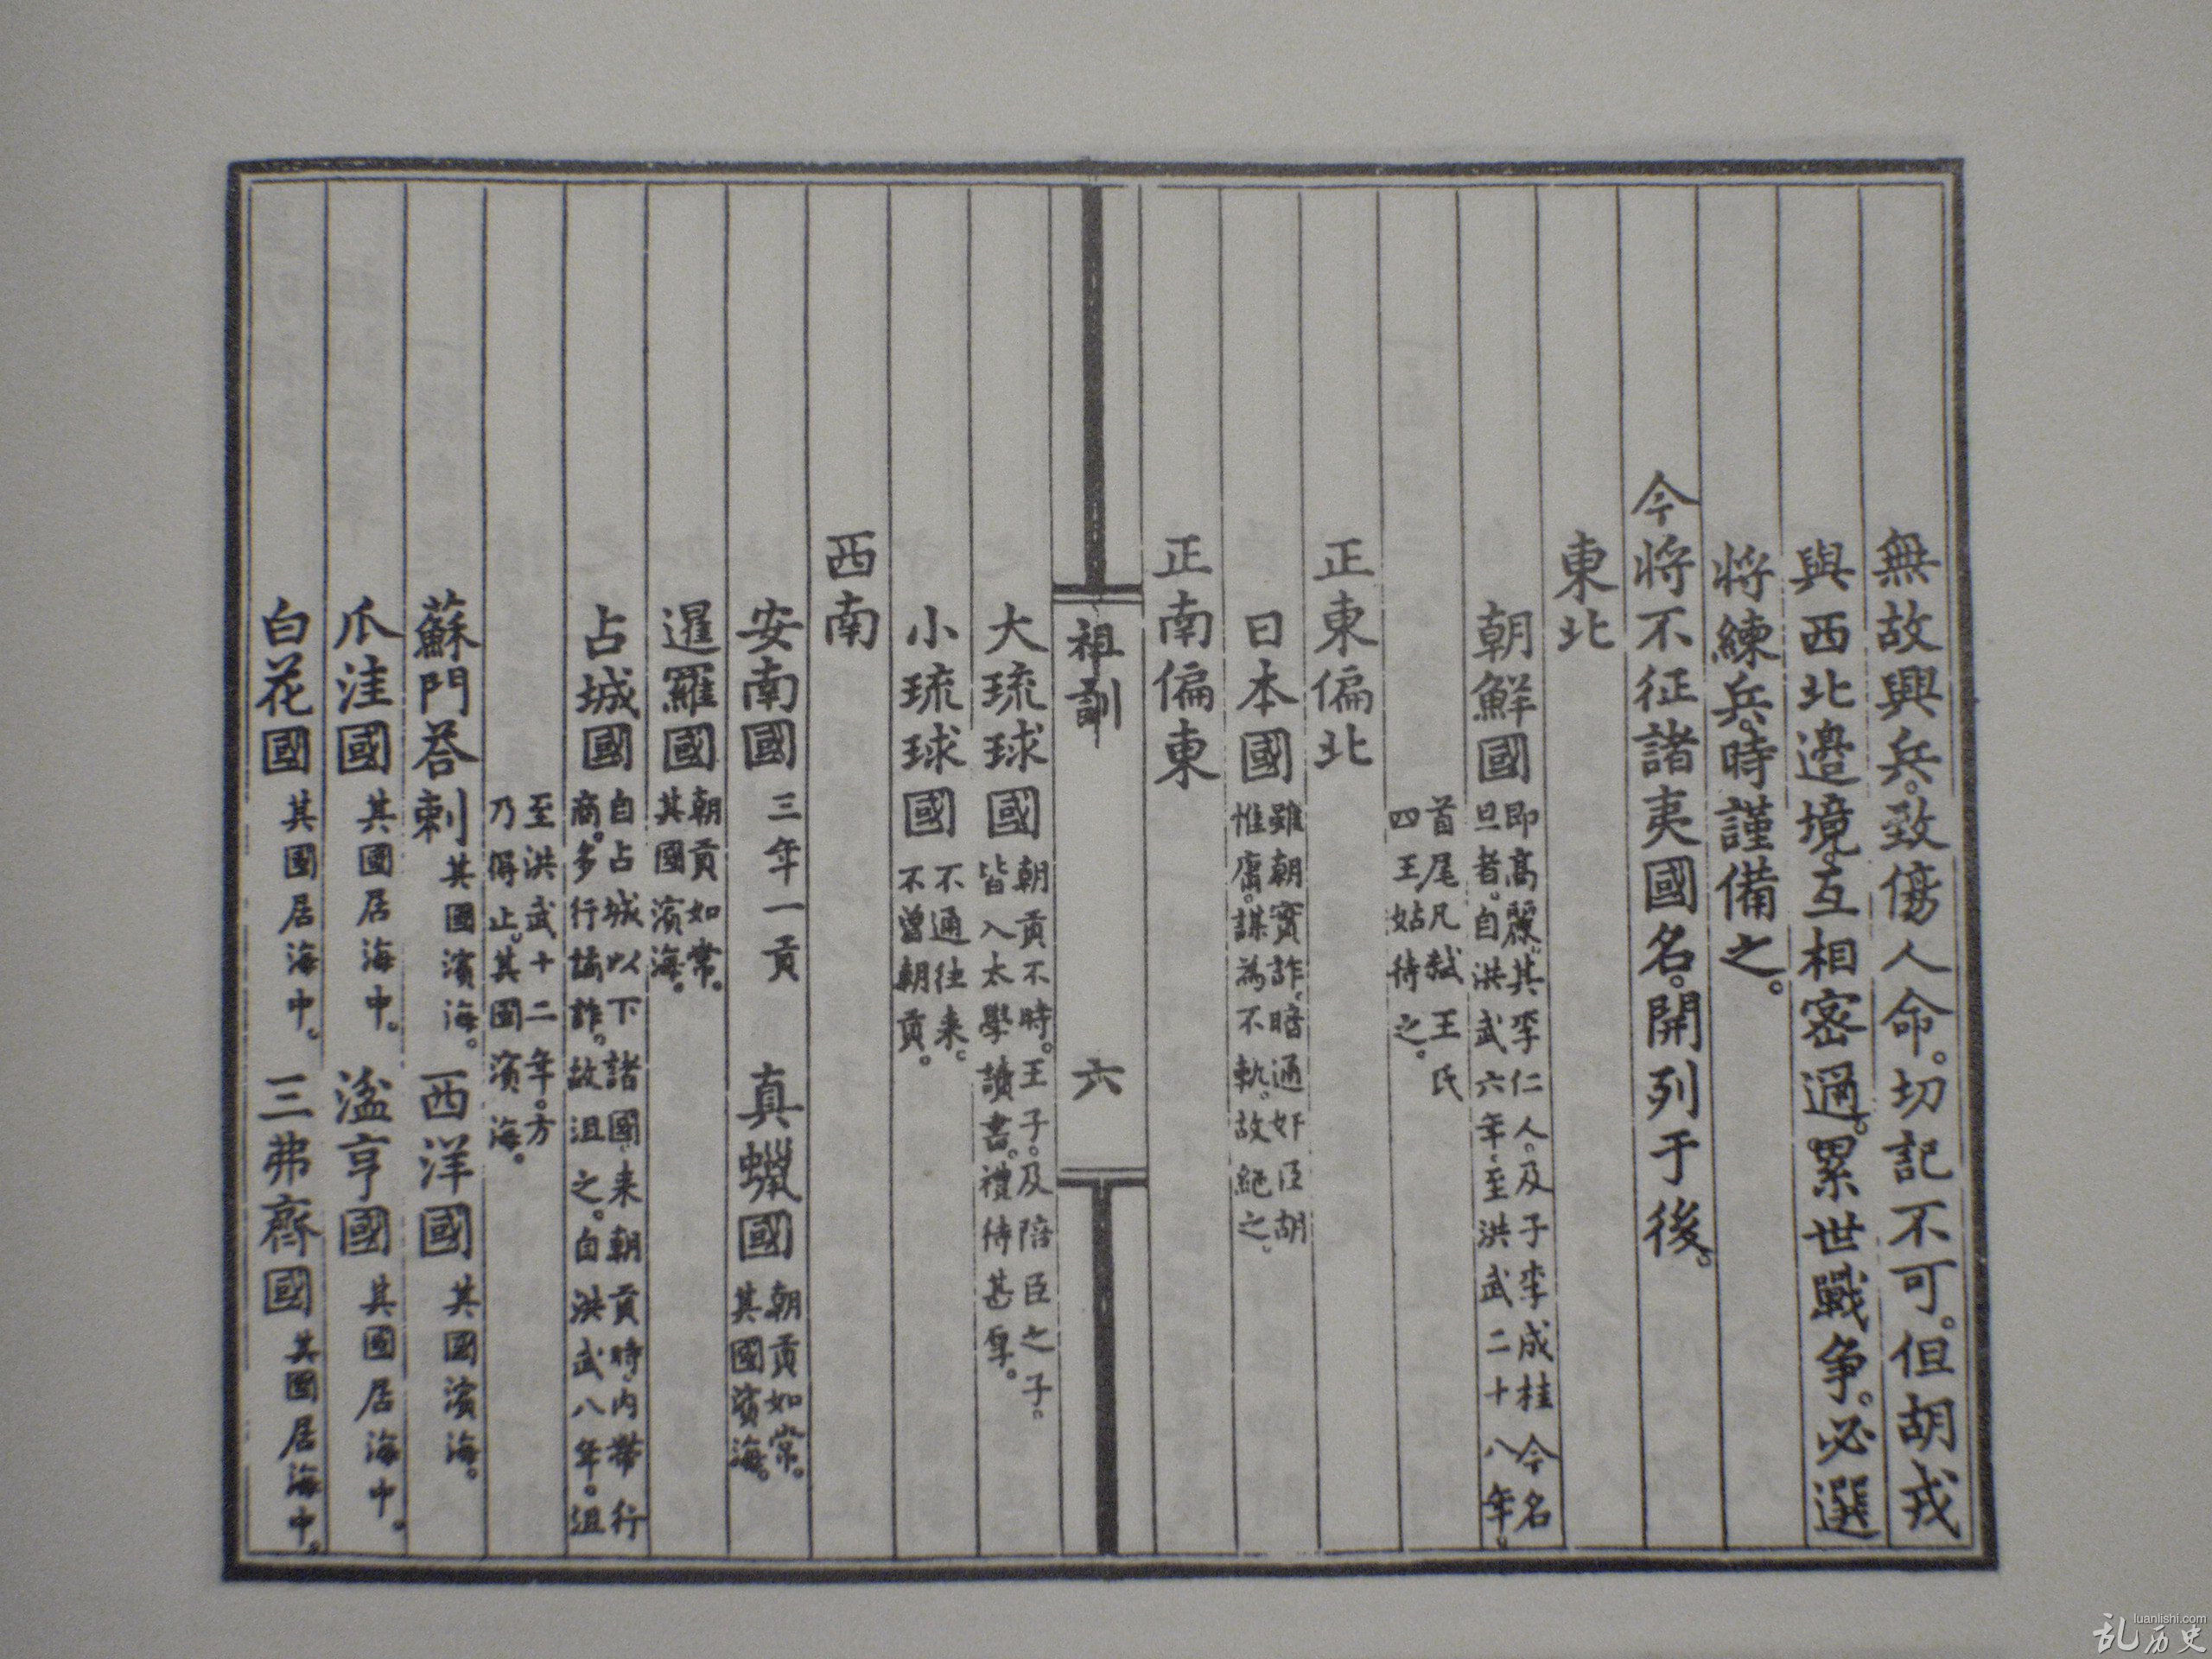 無故興兵。致傷人命。切記不可。但胡戎
與西北邊境。互相密邇。累世戰爭。必選
將練兵。時謹備之。
今將不征諸夷國名。開列于後。
東北
朝鮮國 即高麗。其李仁人。及子李成桂今名
旦者。自洪武六年。至洪武二十八年。
首尾凡弒王氏
四王。姑待之。
正東偏北
日本國 雖朝實詐。暗通奸臣胡
惟庸。謀為不軌。故絕之。
正南偏東
祖訓 六
大琉球國 朝貢不時。王子。及陪臣之子。
皆入太學讀書。禮待甚厚。
小琉球國 不通往来。
不曾朝貢。
西南
安南國 三年一貢 真蠟國 朝貢如常。
其國濱海。
暹羅國 朝貢如常。
其國濱海。
占城國 自占城以下諸國。来朝貢時。內帶行
商。多行譎詐。故沮之。自洪武八年。沮
至洪武十二年。方
乃得止。其國濱海。
蘇門荅剌 其國濱海。 西洋國 其國濱海。
爪洼國 其國居海中。 湓亨國 其國居海中。
白花國 其國居海中。 三弗齊國 其國居海中。
luanlishi.com
乱历史